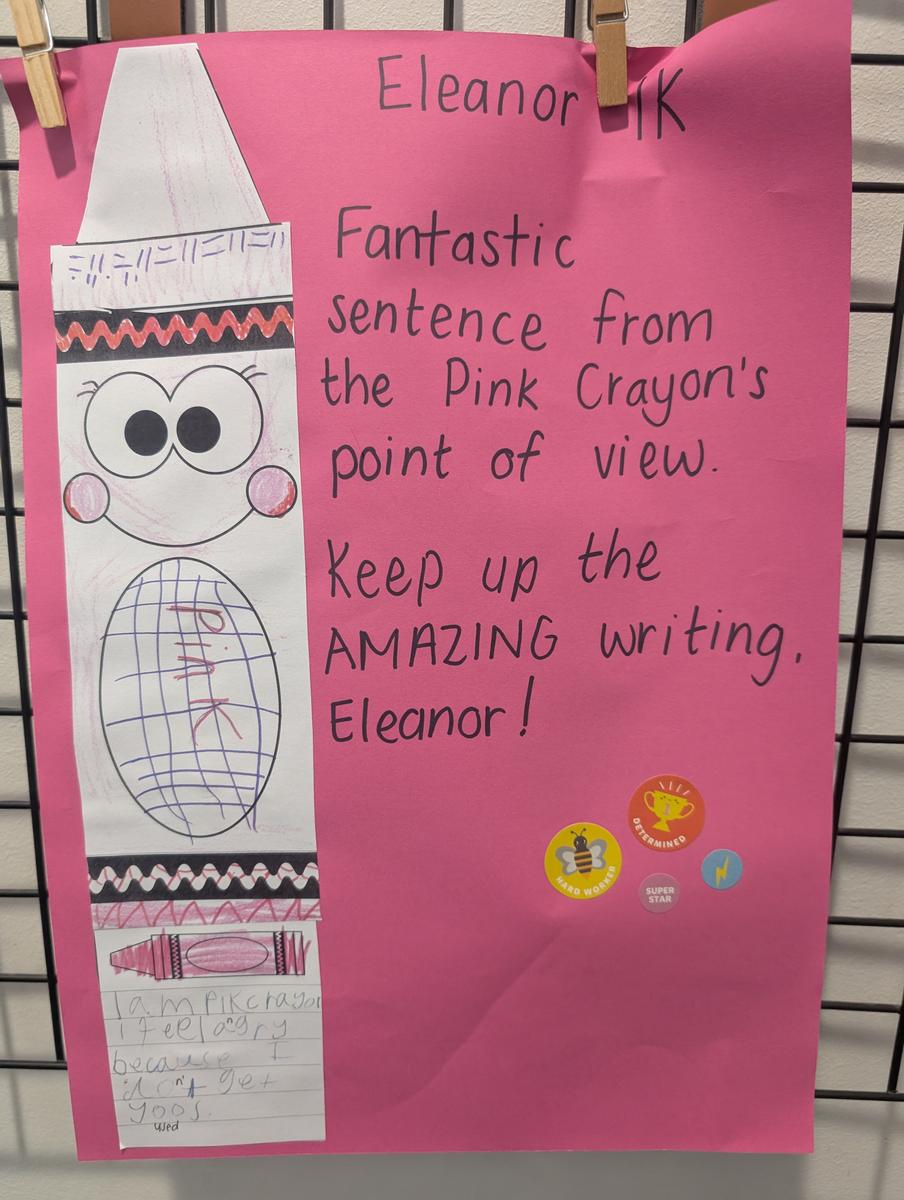 Eleanor 1K
Fantastic
sentence from
the Pink Crayon's
point of view.
Keep up the
AMAZING writing,
Eleanor!
PinK
DETERMINED
HARD WORKER
SUPER
STAR
I am PIK crayon
i feel angry
because I
don't get
yoos.
used